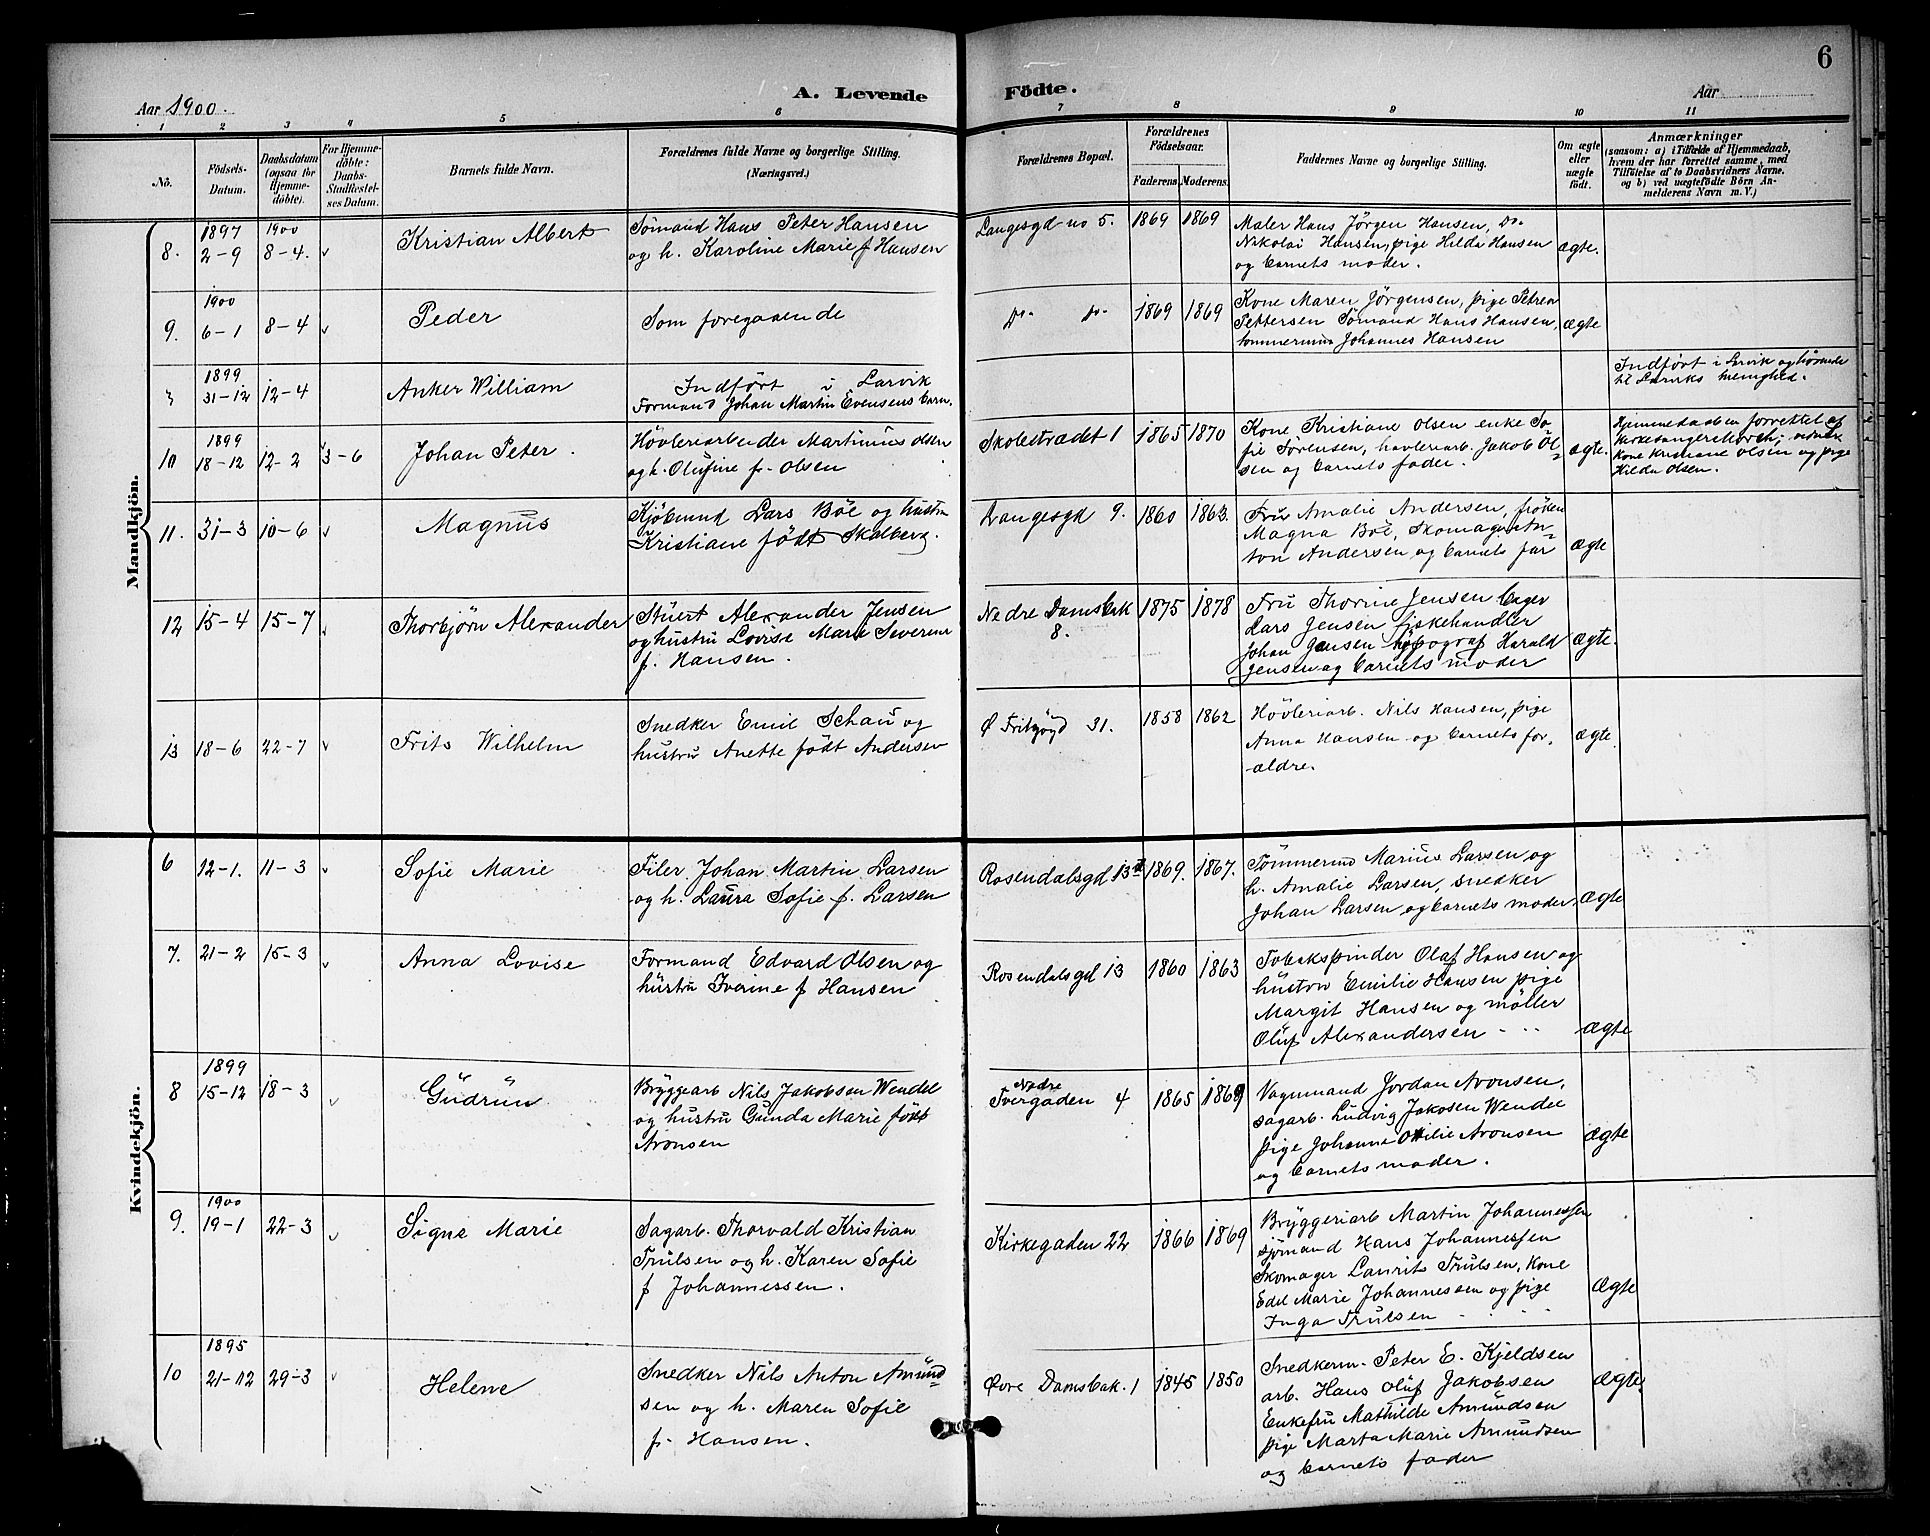 6
Aar 1900.
A. Levende
Födte.
Aar
1 2 3 4 5 6 7 8 9 10 11
No.
Födsels-
Datum.
Daabsdatum
(ogsaa for
Hjemme-
döbte).
For Hjemme-
döbte:
Daabs-
Stadfæstel-
ses Datum.
Barnets fulde Navn.
Forældrenes fulde Navne og borgerlige Stilling.
(Næringsvei.)
Forældrenes Bopæl.
Forældrenes
Födselsaar.
Faderens.
Moderens.
Faddernes Navne og borgerlige Stilling.
Om ægte
eller
uægte
födt.
Anmærkninger
(saasom: a) i Tilfælde af Hjemmedaab,
hvem der har forrettet samme, med
Tilföielse af to Daabsvidners Navne.
og b) ved uægtefödte Börn An-
melderens Navn m. V.)
Mandkjön.
8. 1897 2-9 1900 8-4. Kristian Albert
Sømand Hans Peter Hansen
og h. Karoline Marie f Hansen
Langesgd no 5. 1869 1869
Maler Hans Jørgen Hansen, Do.
Nikolai Hansen, pige Hilda Hansen
og barnets moder.
ægte.
9. 1900 6-1 8-4 Peder
Som foregaaende
Do. Do. 1869 1869
Kone Maren Jørgensen, pige Petrea
Pettersen Sømand Hans Hansen,
tømmermnn Johannes Hansen
ægte
1899 31-12 12-4 Anker William
Indført i Larvik
Formand Johan Martin Evensens barn.
Indført i Larvik og hørende
til Larviks menighed.
10 1899 18-12 12-2 3-6 Johan Peter.
Høvleriarbeider Martinius olsen
og h. Olufine f. Olsen
Skolestrædet 1 1865 1870
Kone Kristiane olsen enke So-
fie Sørensen, høvleriarb. Jakob Ol-
sen og barnets fader.
ægte.
Hjemmedaaben forrettet af
kirkesanger
Kone Kristiane Olsen og pige
Hilda Olsen.
11. 31-3 10-6 Magnus
Kjøbmnd Lars Bøe og hustru
Kristiane født Skalberg.
Langesgd 9. 1860 1863.
Fru Amalie Andersen, frøken
Magna Bøe, Skomager An-
ton Andersen og barnets far
Ægte
12 15-4 15-7 Thorbjørn Alexander
Stuert Alexander Jensen
og hustru Lovise Marie Severine
f. Hansen.
Nedre Damsbak
8. 1875 1878
Fru Thorine Jensen bager
Lars Jensen fiskehandler
Johan Jensen typograf Harald
Jensen og barnets moder
Ægte.
13 18-6 22-7 Frits Wilhelm
Snedker Emil Schau og
hustru Anette født Andersen
Ø Fritzøgd 31. 1858 1862
Høvleriarb. Nils Hansen, pige
Anna Hansen og barnets for.
ældre.
ægte.
Kvindekjön.
6 12-1. 11-3 Sofie Marie
Filer Johan Martin Larsen
og h. Laura Sofie f. Larsen
Rosendalsgd 13 1869. 1867.
Tømmermd Marius Larsen og
h. Amalie Larsen, snedker
Johan Larsen og barnets moder.
Ægte
7. 21-2 15-3 Anna Lovise
Formand Edvard Olsen og
hustru Iverine f Hansen
Rosendalsgd 13 1860 1863
Tobakspinder Olaf Hansen og
hustru Emilie Hansen pige
Margit Hansen og møller
Oluf Alexandersen
Ægte
8 1899 15-12 18-3 Gudrun
Bryggearb Nils Jakobsen Wendel
og hustru Gunda Marie født
Aronsen
Nedre
Tvergaden 4 1865 1869
Vognmand Jordan Aronsen,
sagarb. Ludvig Jakosen Wendel
pige Johanna Otilie Aronsen
og barnets moder.
Ægte
9. 1900 19-1 22-3 Signe Marie
Sagarb. Thorvald Kristian
Trulsen og h. Karen Sofie
f Johannessen.
Kirkegaden 22 1866 1869
Bryggeriarb Martin Johannessen
sjømand Hans Johannessen
Skomager Laurits Trulsen, Kone
Edel Marie Johannessen og pige
Inga Trulsen
Ægte
10 1895 21-12 29-3 Helene
Snedker Nils Anton Amund-
sen og h. Maren Sofie
f. Hansen.
Øvre Damsbak. 1 1845 1850
Snedkerm. Peter E. Kjeldsen
arb. Hans Oluf Jakobsen
Enkefru Mathilde Amundsen
pige Marta Marie Amundsen
og barnets fader
Ægte.